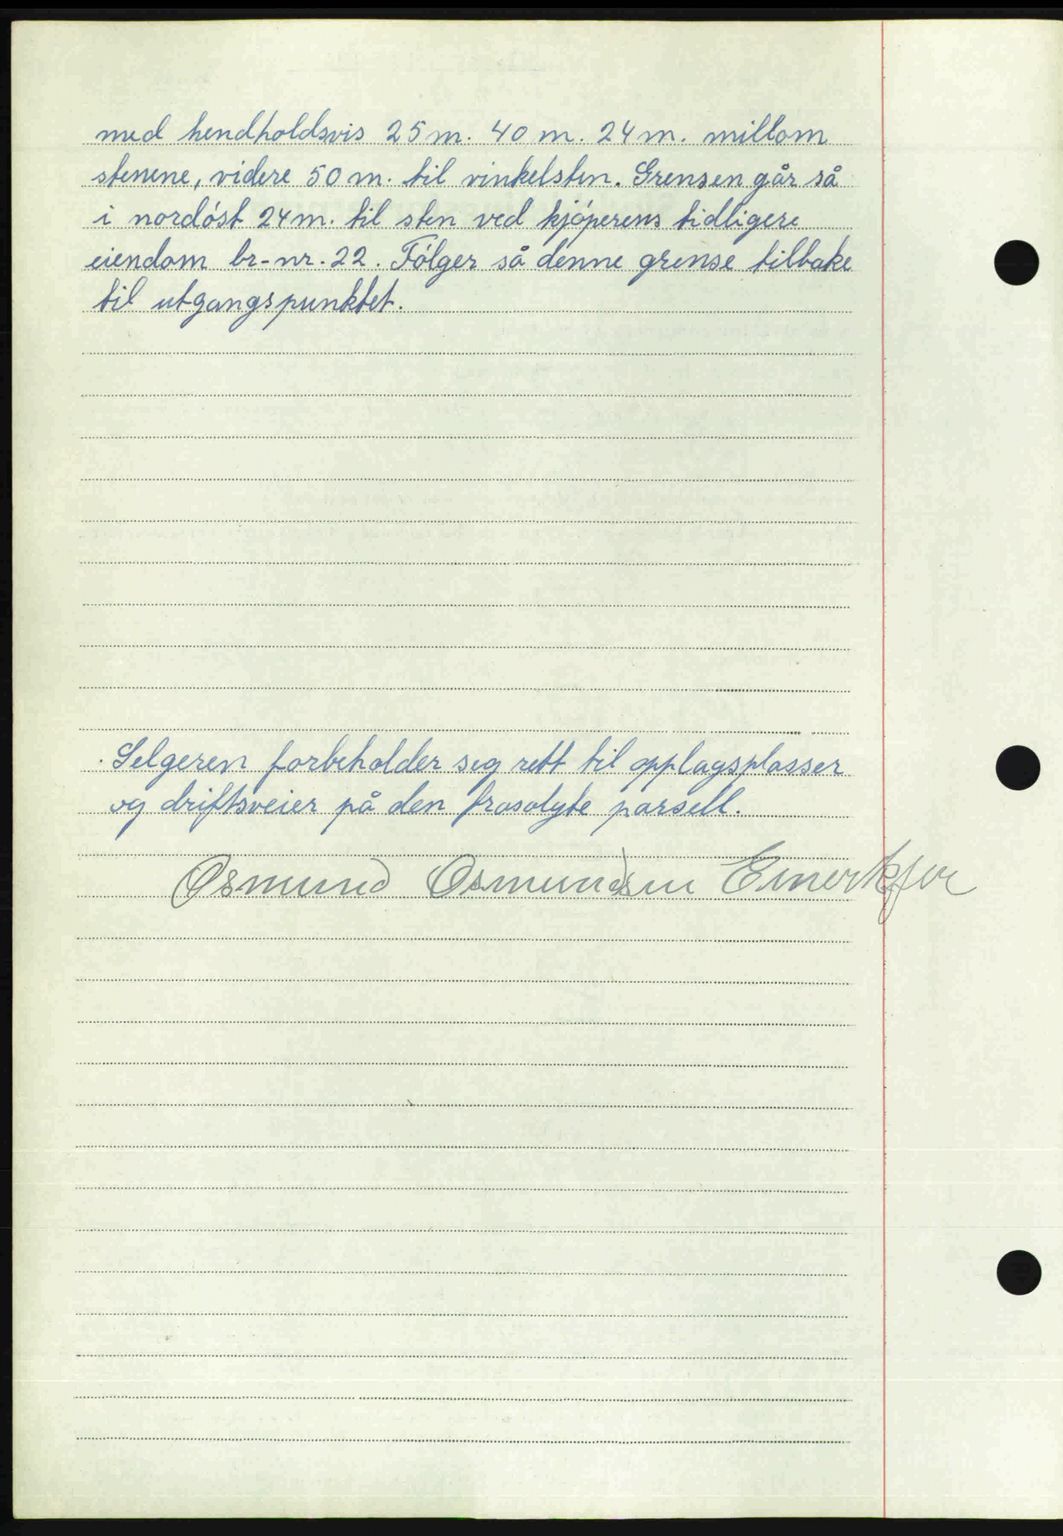 med hendholdsvis 25 m. 40 m. 24 m. millom
stenene, videre 50 m. til vinkelsten. Grensen går så
i nordóst 24 m. til sten ved kjóperens tidligere
eiendom br-nr. 22. Fólger så denne grense tilbake
til utgangspunktet.
Selgeren forbeholder seg rett til opplagsplasser
og driftsveier på den frasolgte parsell.
Osmund Osmundsen